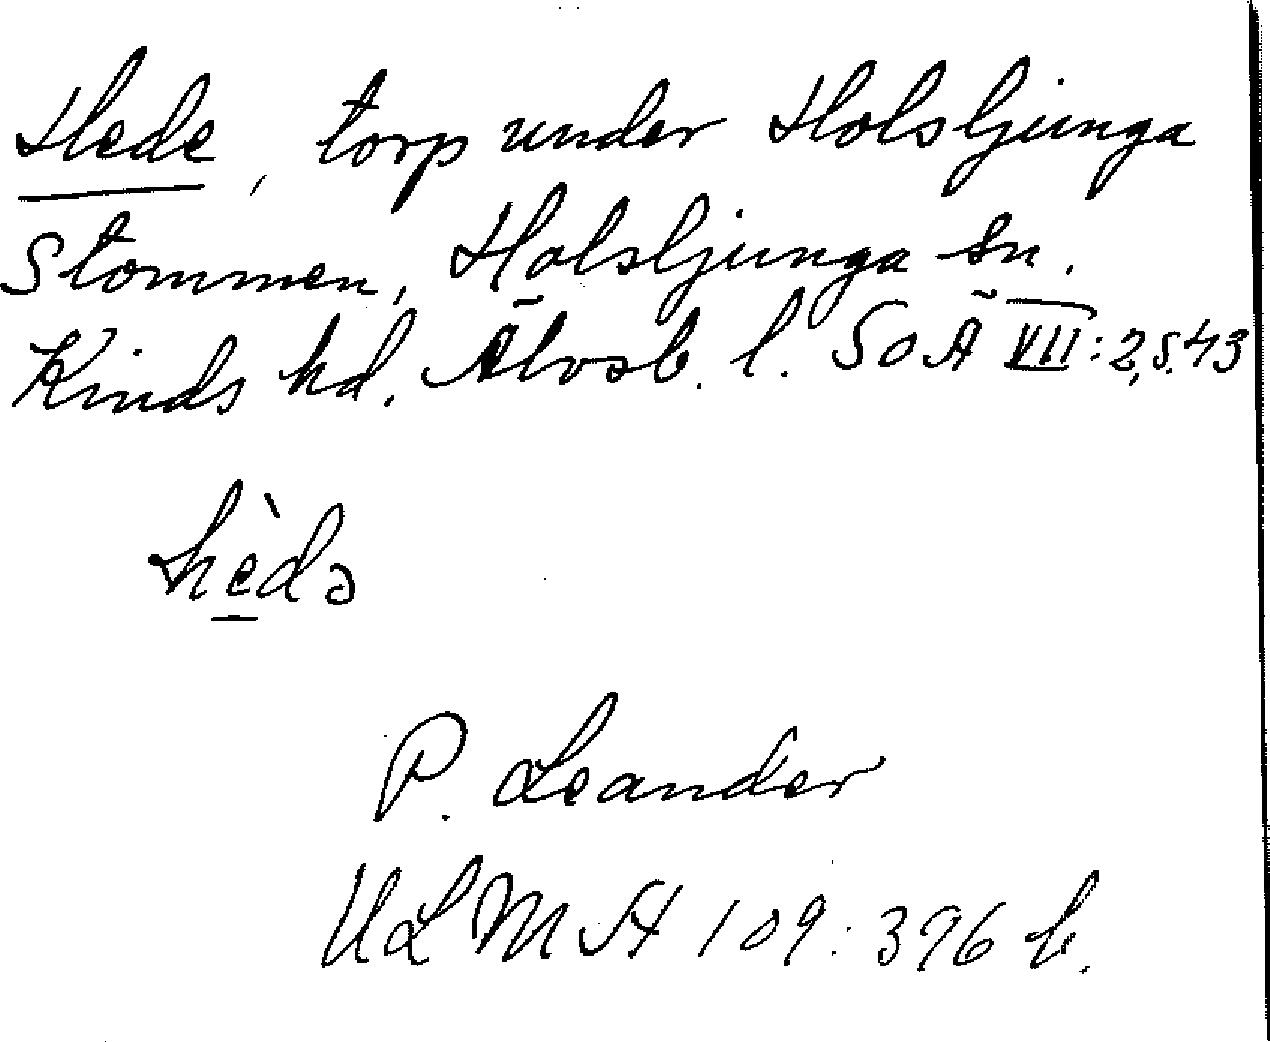 Hede, torp under Holsljunga
Stommen, Holsljunga sn.
Kinds hd. Älvsb. l. SOÄ VII:2, s. 43
hèdə
P. Leander
ULMA 109:396 b.